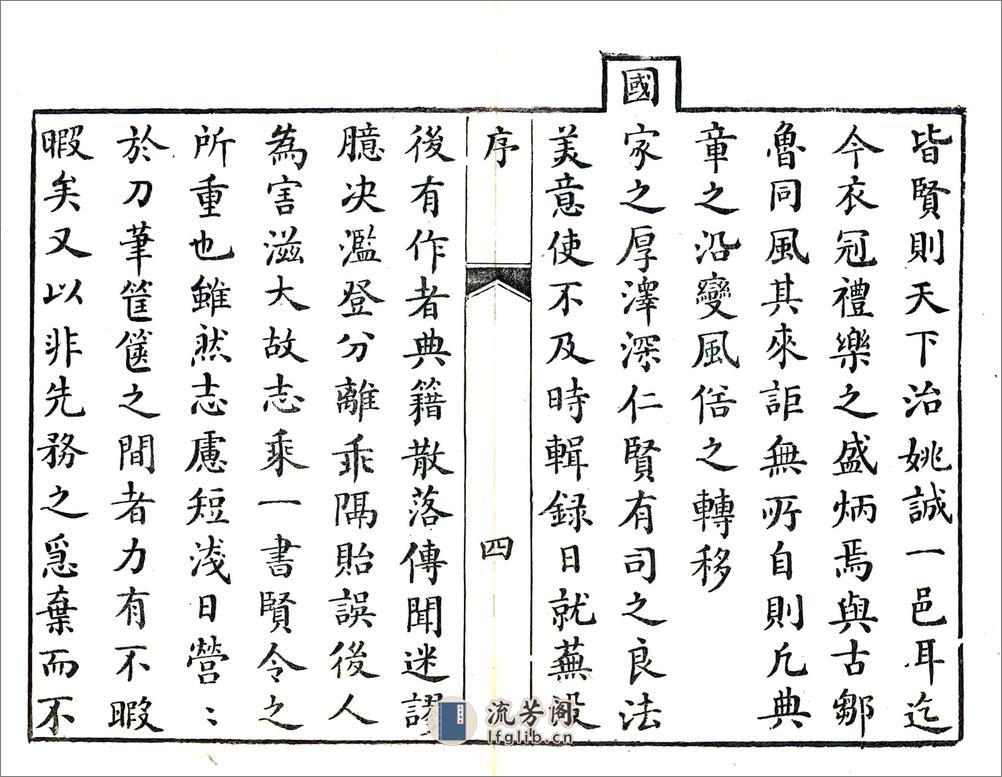 皆賢則天下治姚誠一邑耳迄
今衣冠禮樂之盛炳焉與古鄒
魯同風其來詎無所自則凢典
章之沿變風俗之轉移
國
家之厚澤深仁賢有司之良法
美意使不及時輯録日就蕪沒
序
四
後有作者典籍散落傳聞迷謬
臆决濫登分離乖隔貽誤後人
為害滋大故志乘一書賢令之
所重也雖然志慮短淺日營〻
於刀筆筐篋之間者力有不暇
暇矣又以非先務之爲棄而不
流芳阁
lfglib.cn